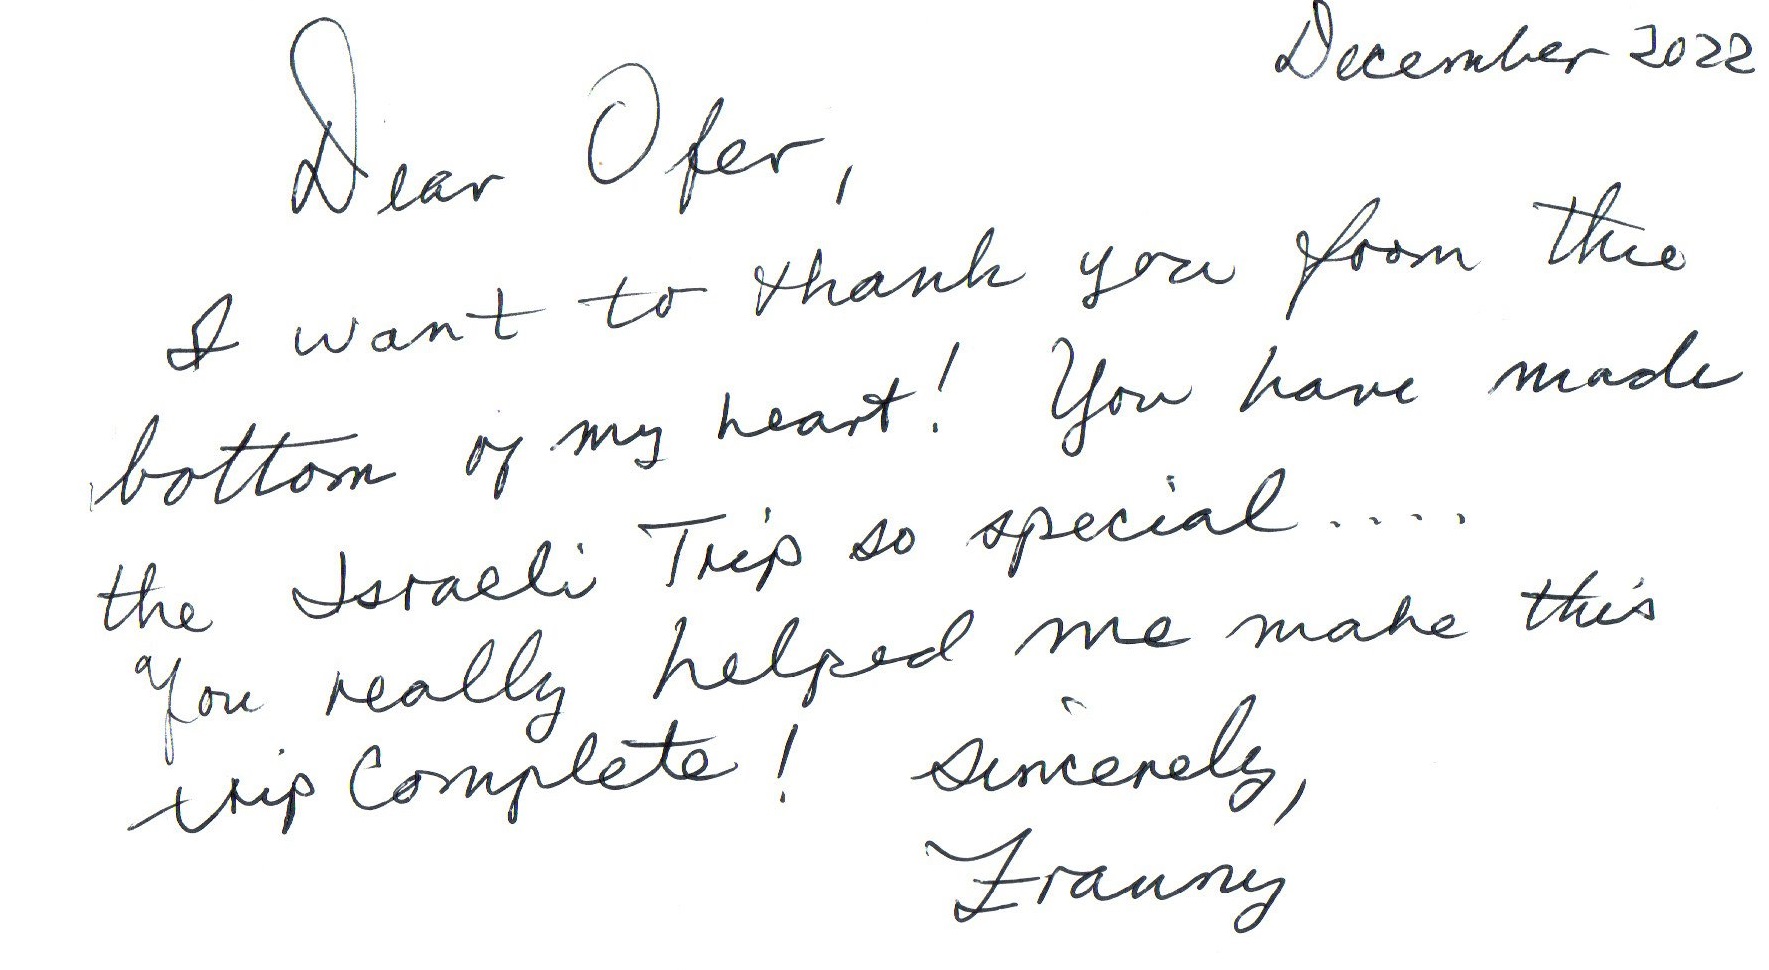 December 2022
Dear Ofer,
I want to thank you from the
bottom of my heart! You have made
the Israeli Trip so special....
You really helped me make this
trip Complete! Sincerely,
Franny